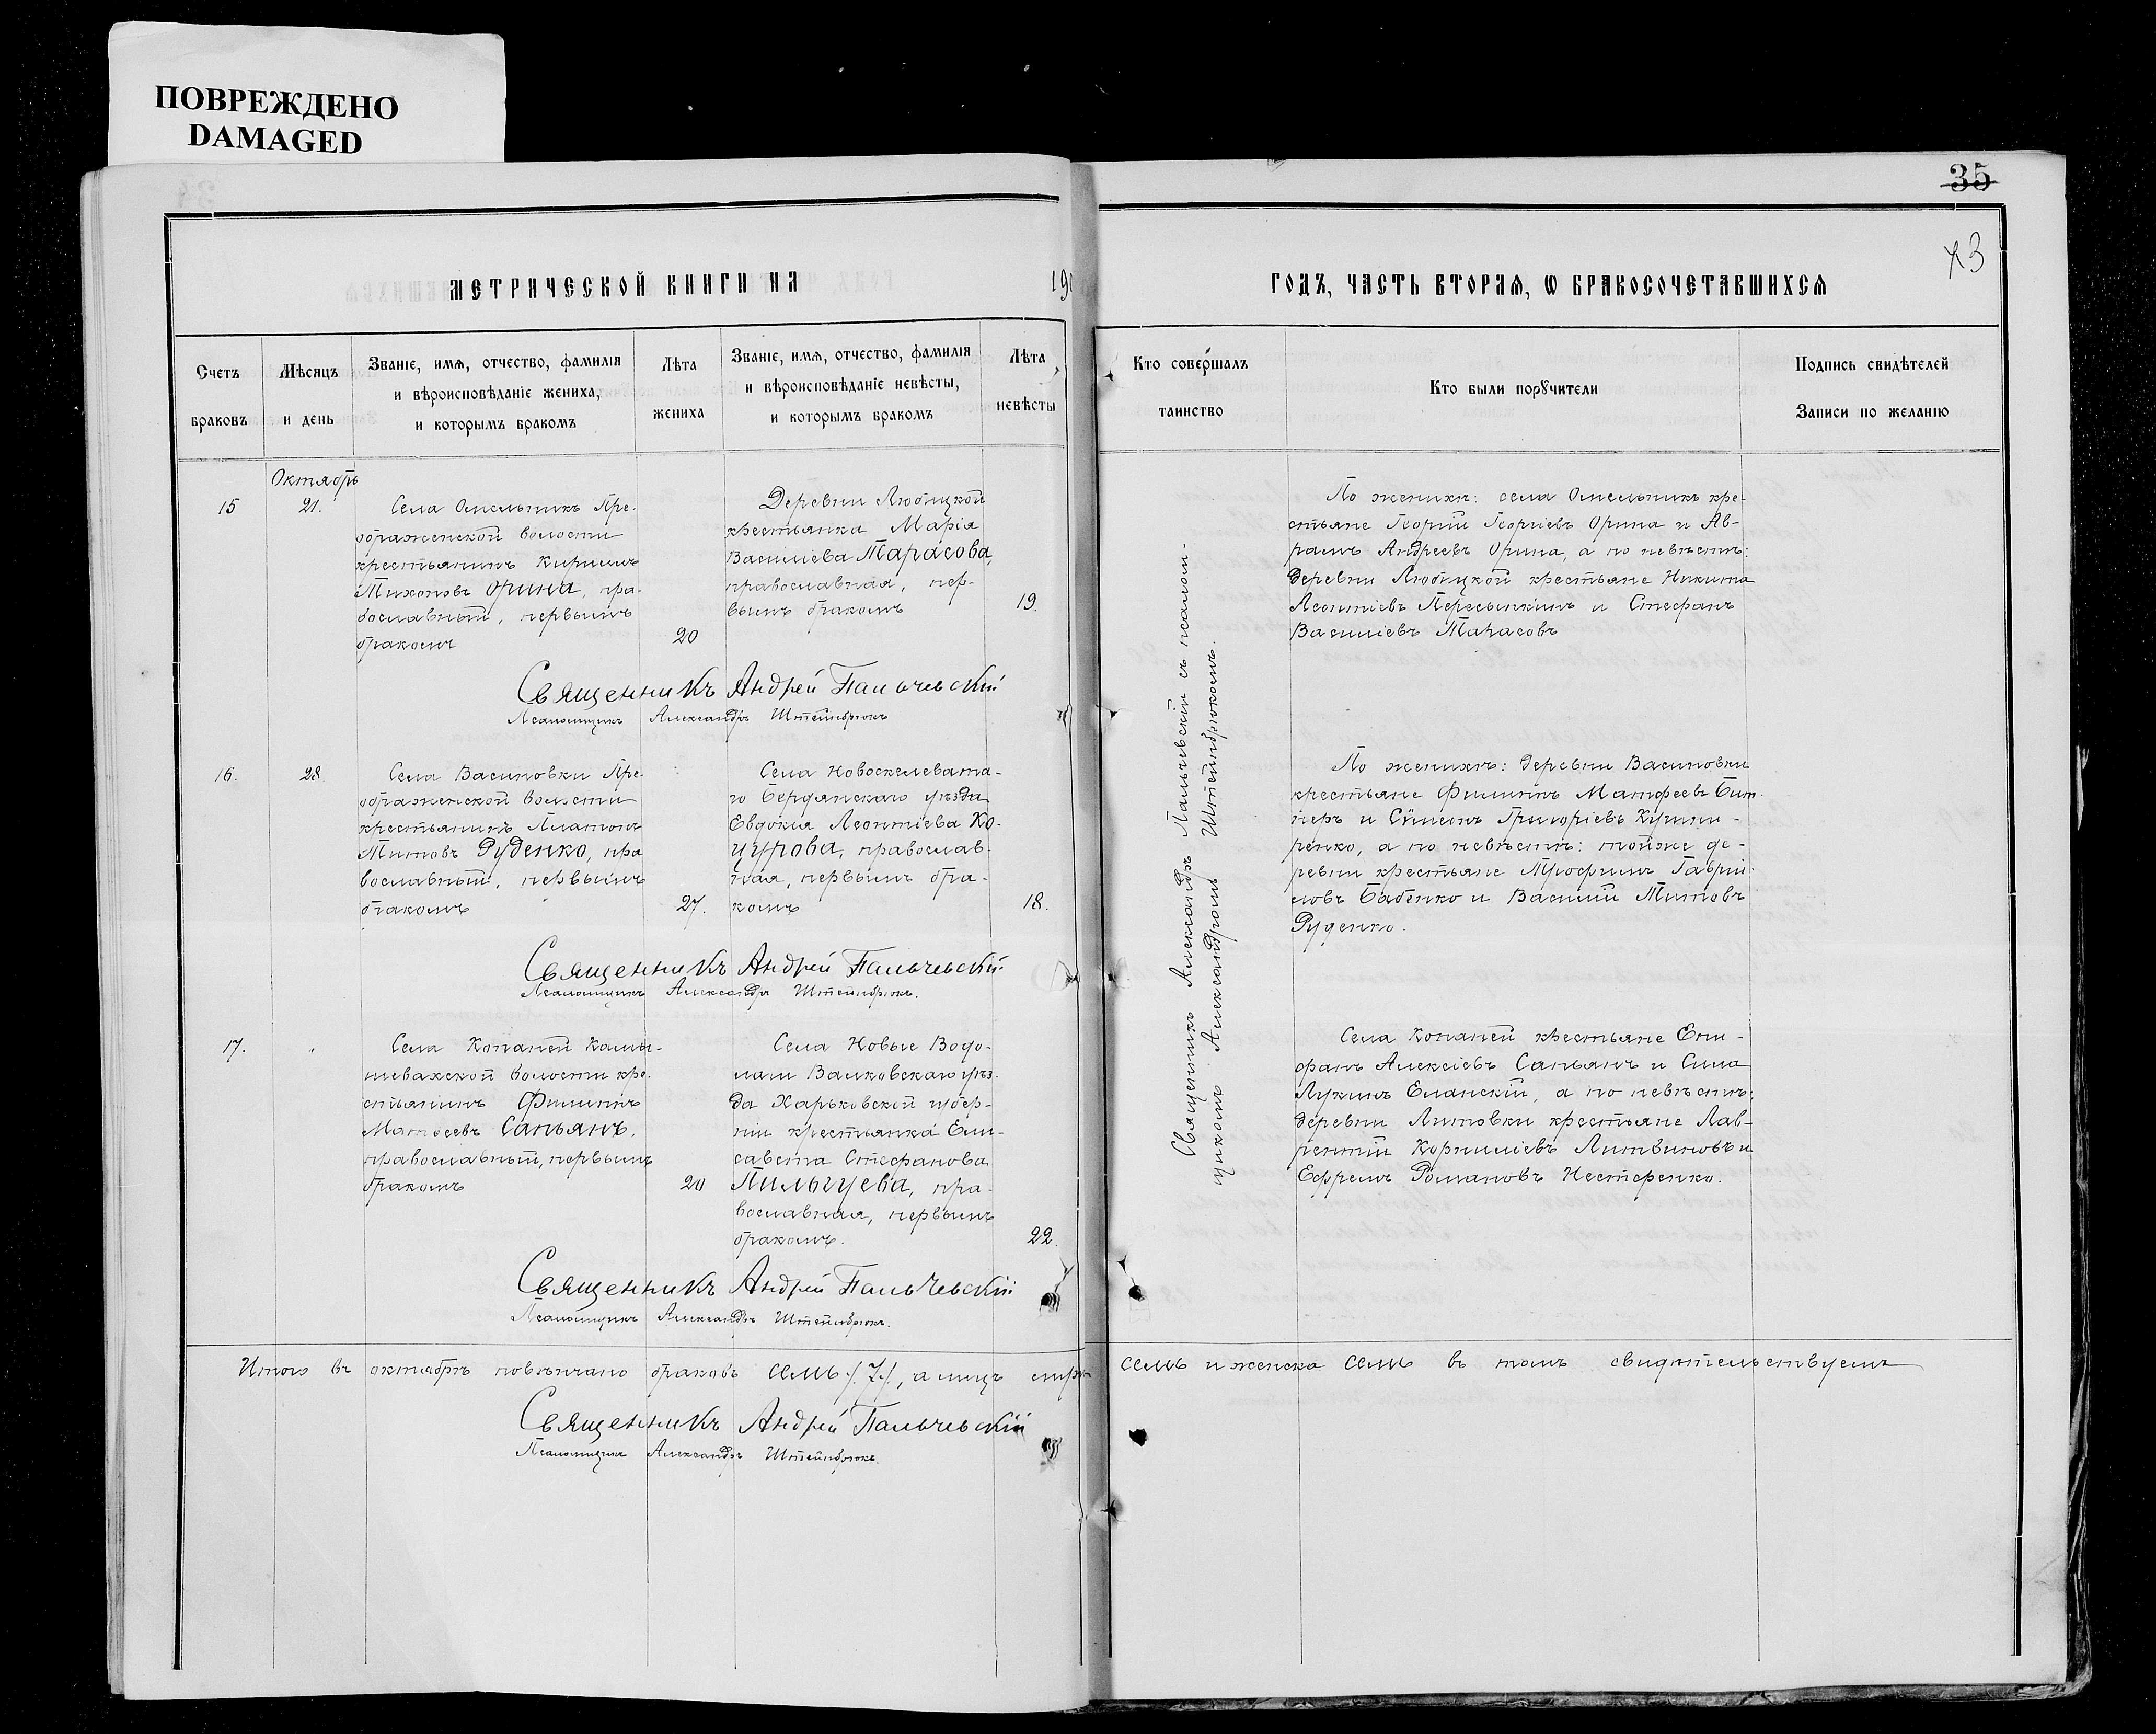 ПОВРЕЖДЕНО
DAMAGED
35
МЕТРИЧЕСКОЙ КНИГИ НА 190
ГОДЪ, ЧАСТЬ ВТОРАЯ, Ѡ БРАКОСОЧЕТАВШИХСЯ
Счетъ
браковъ
Мѣсяцъ
и день
Званіе, имя, отчество, фамилія
и вѣроисповѣданіе жениха,
и которымъ бракомъ
Лѣта
жениха
Званіе, имя, отчество, фамилія
и вѣроисповѣданіе невѣсты,
и которымъ бракомъ
Лѣта
невѣсты
Кто совершалъ
таинство
Кто были порꙋчители
Подпись свидѣтелей
Записи по желанію
15
Октябрь
21.
Села Омельникъ Пре-
ображенской волости
крестьянинъ Кириллъ
Тихоновъ Орина, пра-
вославный, первымъ
бракомъ
20
Деревни Любицкой
крестьянка Марія
Василіева Тарасова,
православная, пер-
вымъ бракомъ
19.
По женихѣ: села Омельникъ кре-
стьяне Георгій Георгіевъ Орина и Ав-
рамъ Андреевъ Орина, а по невѣстѣ:
деревни Любицкой крестьяне Никита
Леонтіевъ Пересыпкинъ и Стефанъ
Василіевъ Тарасовъ
Священникъ Андрей Пальчевскій
Псаломщикъ Александръ Штейнбрюкъ
16.
28
Села Васиновки Пре-
ображенской волости
крестьянинъ Платонъ
Титовъ Руденко, пра
вославный, первымъ
бракомъ
27.
Села Новоспелевата-
го Бердянскаго уѣзда
Евдокія Леонтіева Ко-
цурова, православ-
ная, первымъ бра-
комъ
18.
По женихѣ: деревни Васиновки
крестьяне Филиппъ Матфеевъ
и Сѵмеонъ Григоріевъ
а по невѣстѣ: тойже де-
ревни крестьяне Трофимъ Гаврі-
ловъ Бабенко и Василій Титовъ
Руденко.
Священникъ Андрей Пальчевскій
Псаломщикъ Александръ Штейнбрюкъ.
17.
"
Села Копаней Камы-
шевахской волости кре-
стьянинъ Филиппъ
Матѳеевъ Сапьянъ,
православный, первымъ
бракомъ
20
Села Новые Водо-
лаги Валковскаго уѣз-
да Харьковской губер-
ніи крестьянка Ели-
савета Стефанова
Пильгуева, пра-
вославная, первымъ
бракомъ.
22.
Села Копаней крестьяне Епи-
фанъ Алексіевъ Сапьянъ и Сила
Лукинъ Еланскій, а по невѣстѣ:
деревни Литовки крестьяне Лав-
рентій Корниліевъ Литвиновъ и
Ефремъ Романовъ Нестеренко.
Священникъ Андрей Пальчевскій
Псаломщикъ Александръ Штейнбрюкъ.
Священникъ Александръ Пальчевскій съ псалом-
щикомъ Александромъ Штейнбрюкомъ.
Итого въ октябрѣ повѣнчано браковъ семь /.7./, а лицъ семь и женска семь въ томъ свидѣтельствуемъ
Священникъ Андрей Пальчевскій
Псаломщикъ Александръ Штейнбрюкъ.